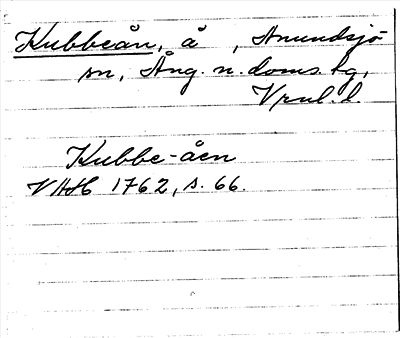 Kubbeån, å, Anundsjö
sn, Ång. n. doms. tg,
Vrnl. l.
Kubbe-åen
VHAH 1762, s. 66.